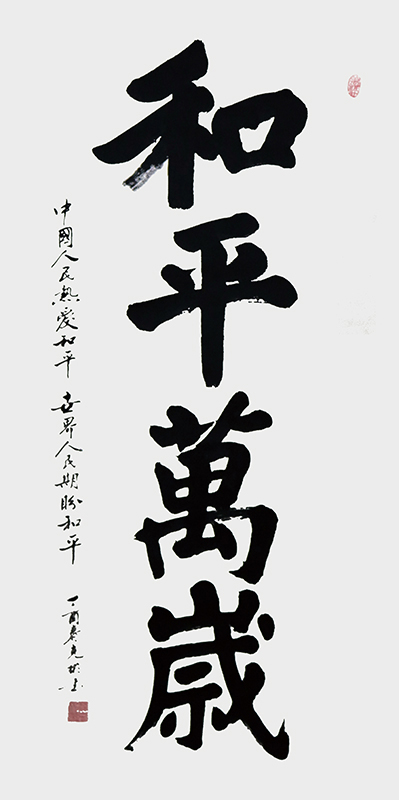 和平萬嵗
中國人民熱愛和平 世界人民期盼和平 丁酉